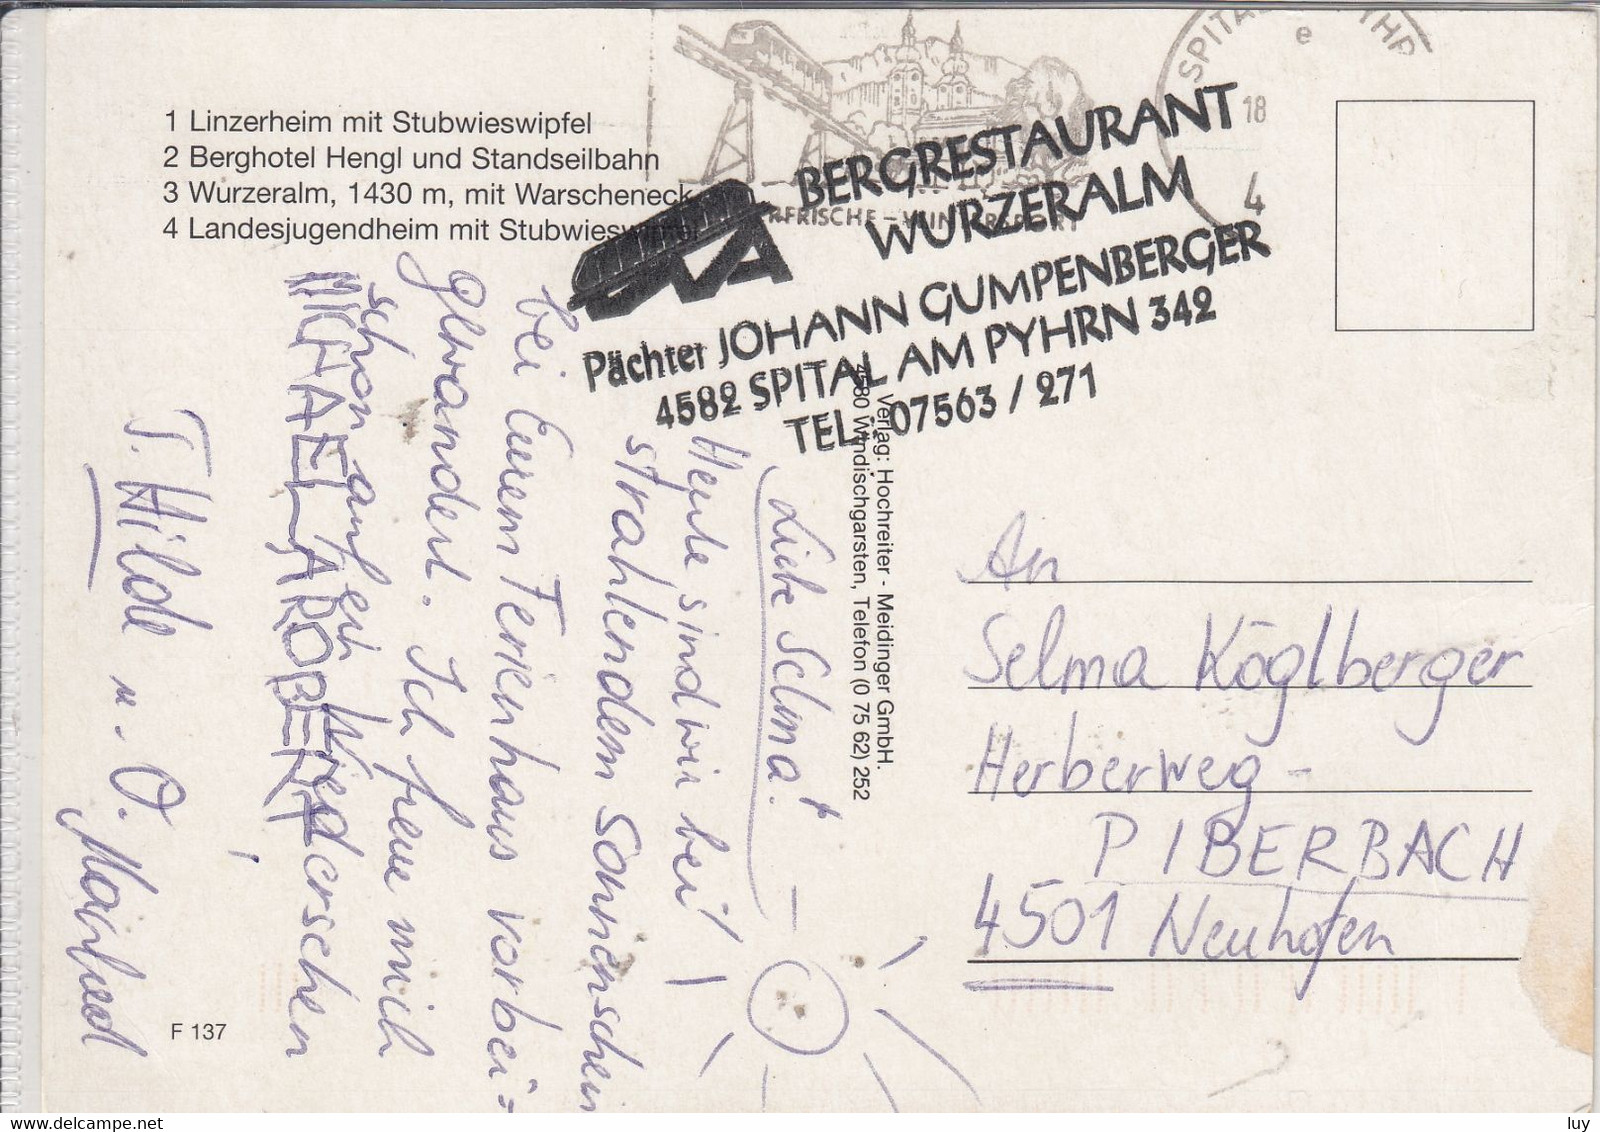 1 Linzerheim mit Stubwieswipfel
2 Berghotel Hengl und Standseilbahn
3 Wurzeralm, 1430 m, mit Warscheneck
4 Landesjugendheim mit Stubwieswipfel
SPITAL PYHR
e
18
4
BERGRESTAURANT
WURZERALM
Pächter JOHANN GUMPENBERGER
4582 SPITAL AM PYHRN 342
TEL.: 07563 / 271
Verlag: Hochreiter - Meidinger GmbH.
4580 Windischgarsten, Telefon (0 75 62) 252
Liebe Selma!
Heute sind wir bei
strahlendem Sonnenschein
bei Eurem Ferienhaus vorbei=
gewandert. Ich freue mich
schon auf ein Wiedersehen
MICHAELAROBERT
T. Hilde u. O.
An
Selma Köglberger
Herberweg -
PIBERBACH
4501 Neuhofen
F 137
luy
www.delcampe.net